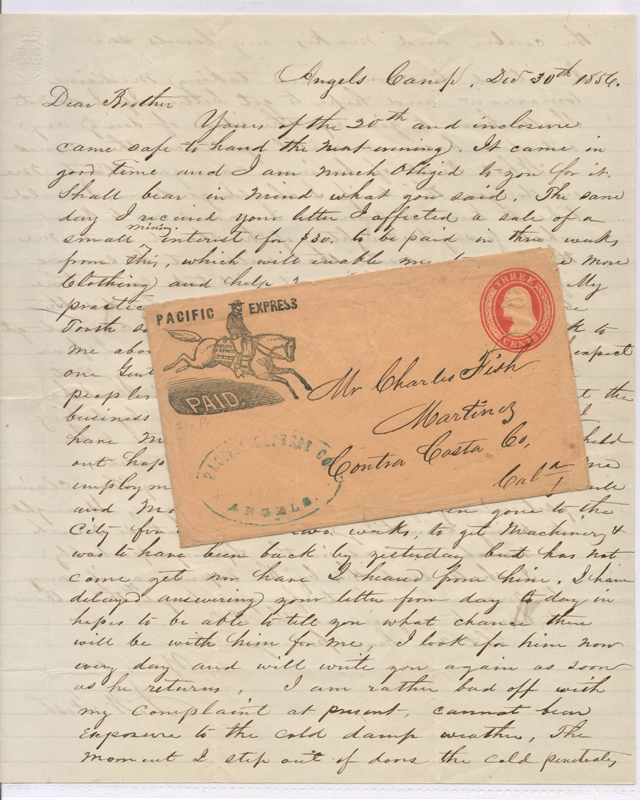 Angels Camp, Dec 30th 1856.
Dear Brother
Yours of the 20th and inclosure
came safe to hand the next evening. It came in
good time and I am much obliged to you for it.
Shall bear in mind what you said. The same
day I received your letter I affected a sale of a
small mining interest for $30. to be paid in three weeks
from this, which will enable me to more
Clothing and help My
practice
Tooth k to
me abou expect
one Gent
peoples t the
business
have M held
out hop
employm me
and M gone to the
City for two weeks, to get Machinery &
was to have been back by yesterday but has not
come yet nor have I heard from him. I have
delayed answering your letter from day to day in
hopes to be able to tell you what chance there
will be with him for me, I look for him now
every day and will write you again as soon
as he returns, I am rather bad off with
my complaint at present, cannot bear
exposure to the cold damp weather, The
moment I step out of doors the cold penetrates
PACIFIC EXPRESS
PACIFIC EXPRESS
PAID.
THREE
CENTS
Mr Charles Fish
Martinez
Contra Costa Co,
Cala
PACIFIC EXPRESS CO
ANGELS.